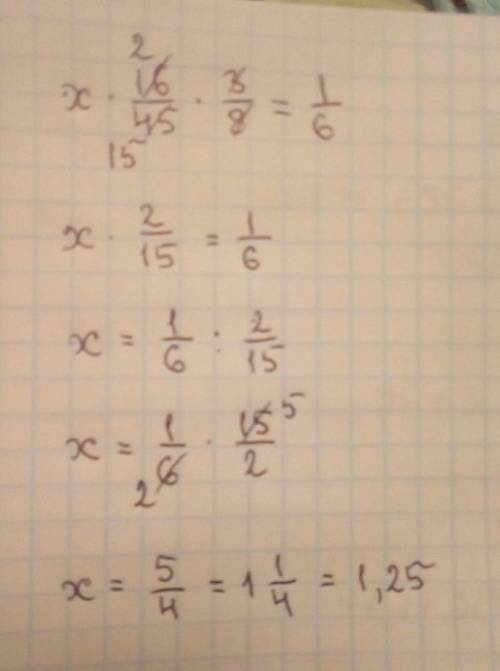 2
x · 16/45 · 3/8 = 1/6
15
x · 2/15 = 1/6
x = 1/6 : 2/15
x = 1/6 · 15/2 5
2
x = 5/4 = 1 1/4 = 1,25